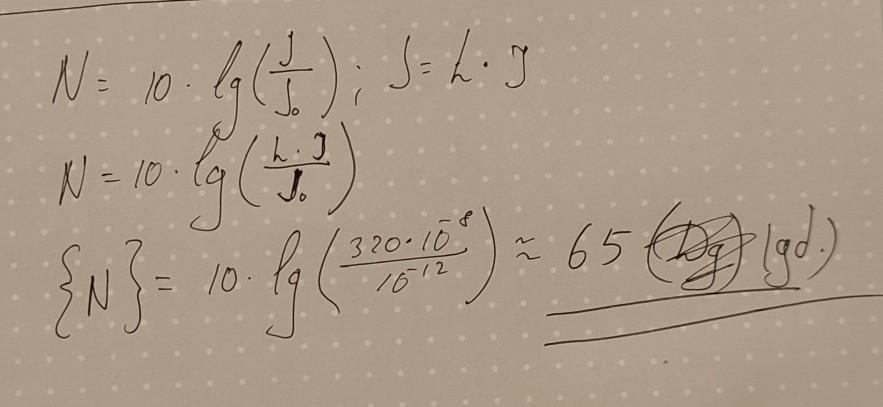 N = 10 · lg(J/J₀); J = h · J
N = 10 · lg(h · J/J₀)
{N} = 10 · lg(320 · 10⁻⁸/10⁻¹²) ≈ 65 (gd.)